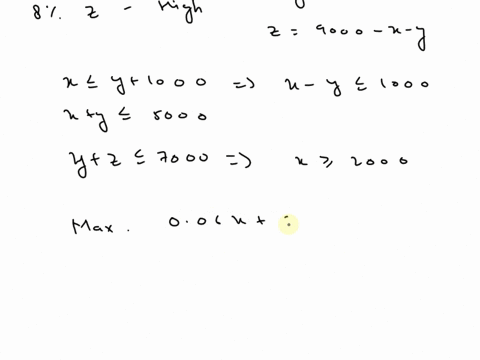 8% z - High
z = 9000 - x - y
x ≤ y + 1000 => x - y ≤ 1000
x + y ≤ 8000
y + z ≤ 7000 => x ≥ 2000
Max. 0.06 x +